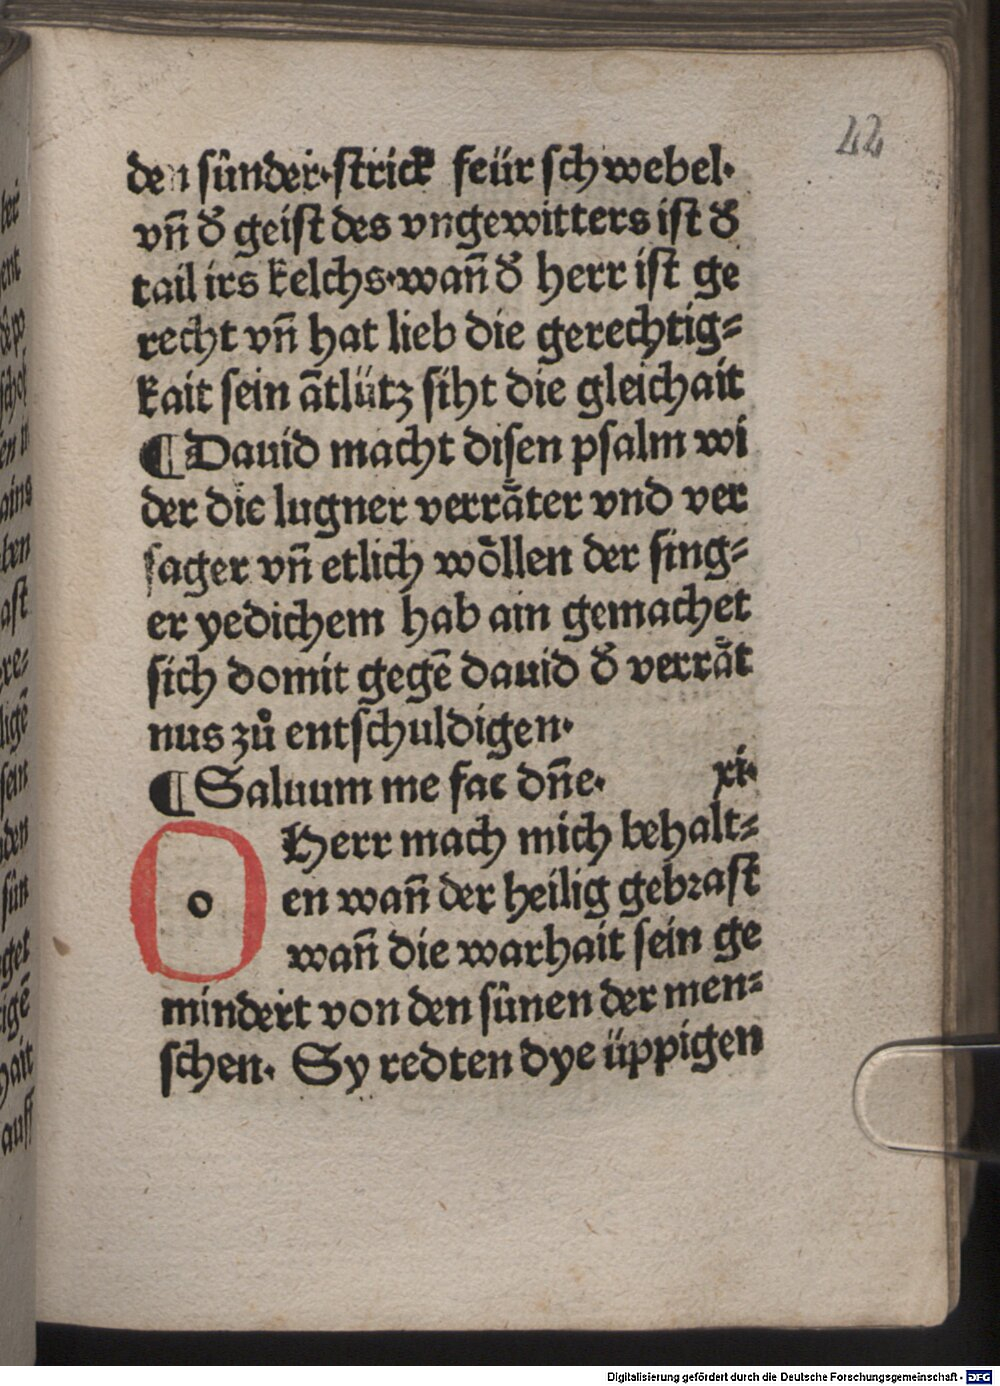 22
den sünder·strick feür schwebel·
vñ d̕ geist des vngewitters ist d̕
tail irs kelchs·wañ d̕ herr ist ge
recht vñ hat lieb die gerechtig⸗
kait sein ātlütz siht die gleichait
¶Dauid macht disen psalm wi
der die lugner verräter vnd ver
sager vñ etlich wöllen der sing⸗
er yedichem hab ain gemachet
sich domit gegē dauid d̕ verrät
nus zů entschuldigen·
¶Saluum me fac dñe· xi·
o Herr mach mich behalt⸗
en wañ der heilig gebrast
wañ die warhait sein ge
mindert von den sünen der men⸗
schen· Sy redten dye üppigen
Digitalisierung gefördert durch die Deutsche Forschungsgemeinschaft - DFG